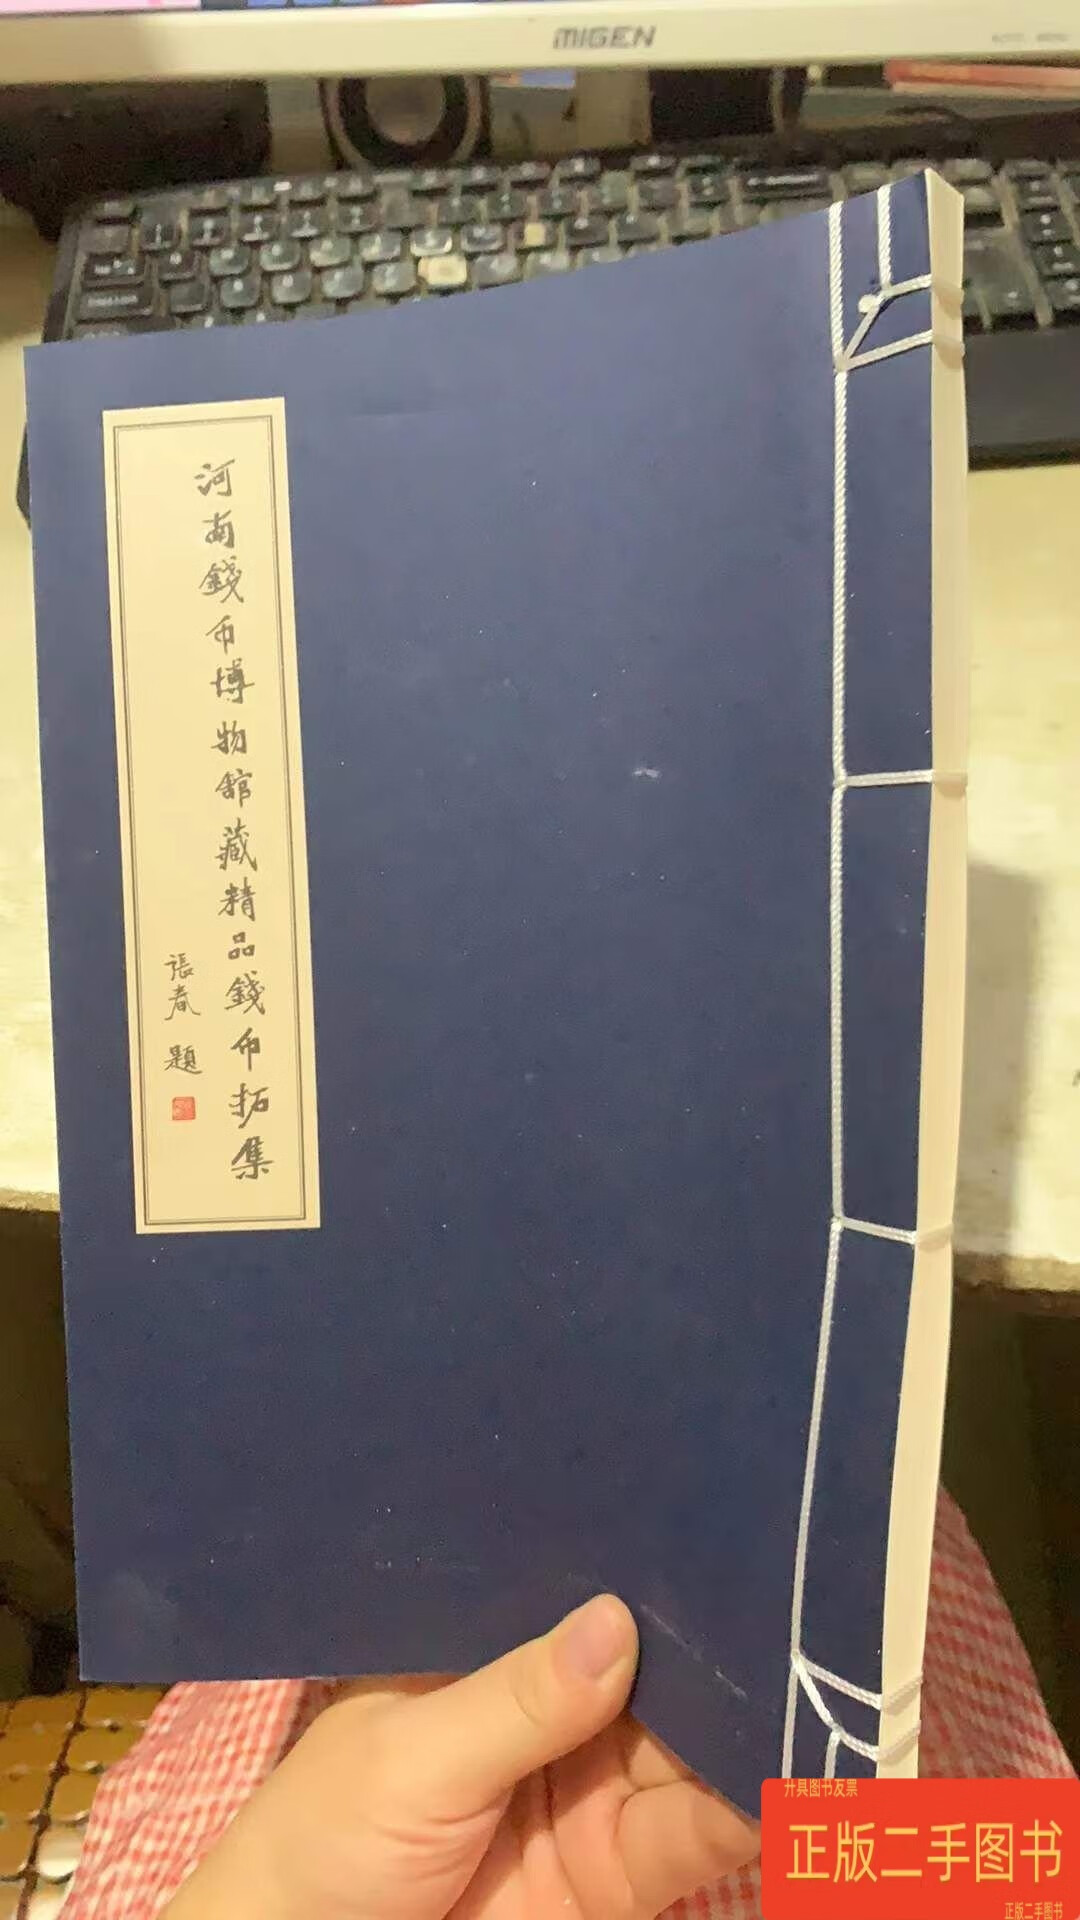 MIGEN
河南錢币博物館藏精品錢币拓集
張春 題
开具图书发票
正版二手图书
正版二手图书